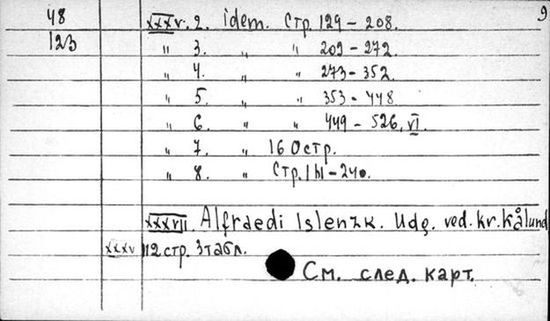 48 XXXV. 2. idem. Стр. 129 – 208. 9
123 " 3. " " 209 – 272.
" 4. " " 273 – 352.
" 5. " " 353 – 448
" 6 " " 449 – 526, VI.
" 7. " 160 стр.
" 8. " Стр. 161 – 240.
XXXVII. Alfraedi Islenzk. Udg. ved. Kr. Kålund
XXXV 112 стр. 3 табл.
См. след. карт.